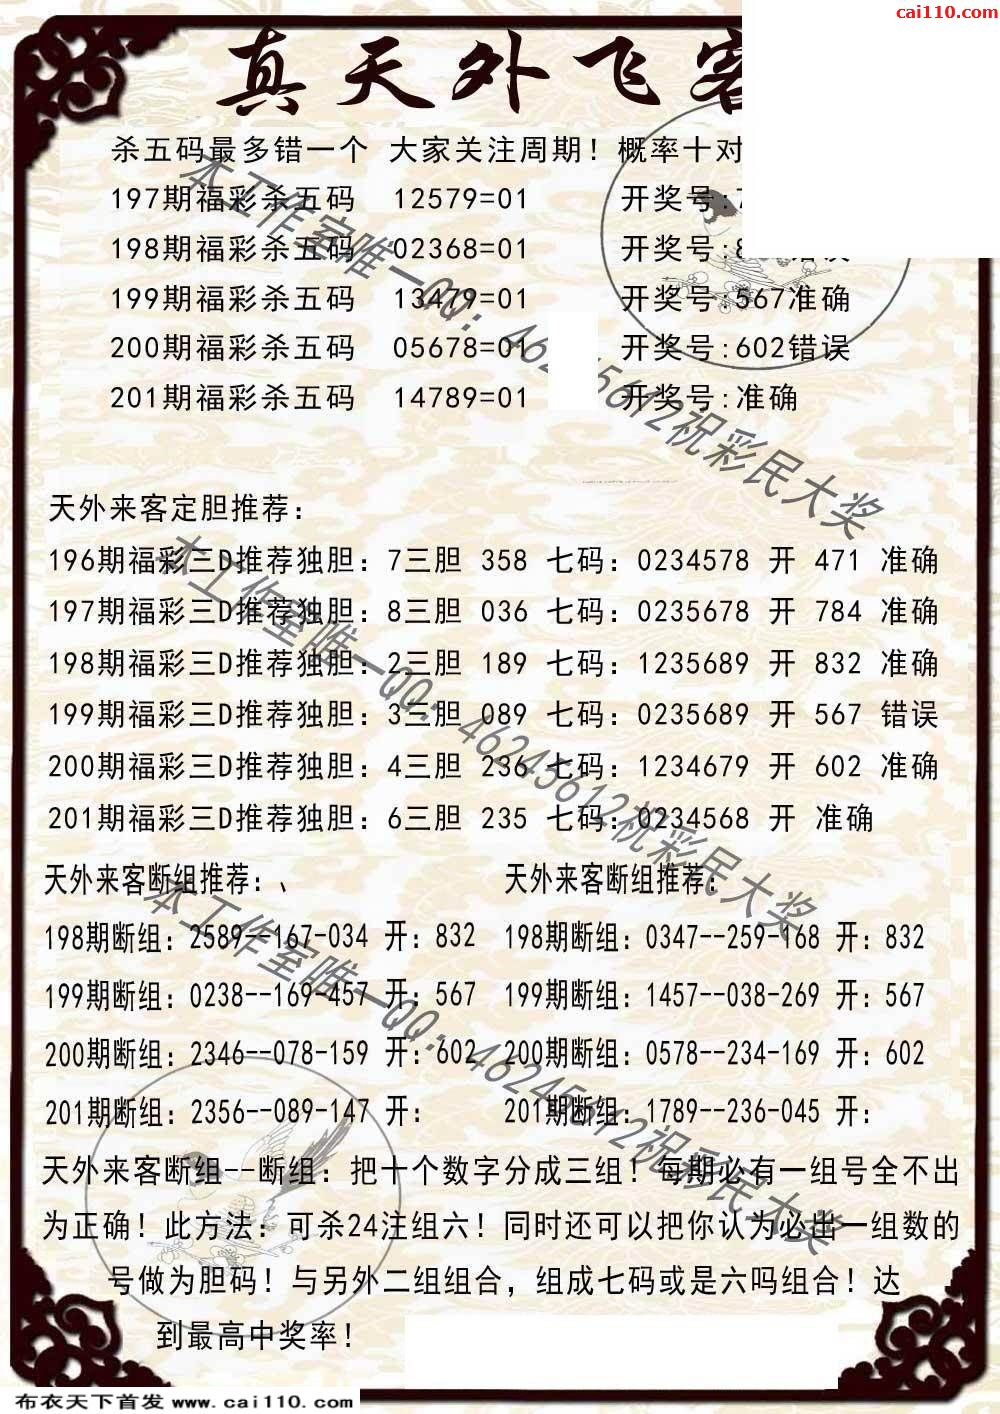 cai110.com
真天外飞客
杀五码最多错一个 大家关注周期！概率十对
197期福彩杀五码 12579=01 开奖号:7
198期福彩杀五码 02368=01 开奖号:8 错误
199期福彩杀五码 13479=01 开奖号:567准确
200期福彩杀五码 05678=01 开奖号:602错误
201期福彩杀五码 14789=01 开奖号:准确
天外来客定胆推荐：
196期福彩三D推荐独胆：7三胆 358 七码：0234578 开 471 准确
197期福彩三D推荐独胆：8三胆 036 七码：0235678 开 784 准确
198期福彩三D推荐独胆：2三胆 189 七码：1235689 开 832 准确
199期福彩三D推荐独胆：3三胆 089 七码：0235689 开 567 错误
200期福彩三D推荐独胆：4三胆 236 七码：1234679 开 602 准确
201期福彩三D推荐独胆：6三胆 235 七码：0234568 开 准确
天外来客断组推荐：、 天外来客断组推荐：
198期断组：2589--167-034 开：832 198期断组：0347--259-168 开：832
199期断组：0238--169-457 开：567 199期断组：1457--038-269 开：567
200期断组：2346--078-159 开：602 200期断组：0578--234-169 开：602
201期断组：2356--089-147 开： 201期断组：1789--236-045 开：
天外来客断组--断组：把十个数字分成三组！每期必有一组号全不出
为正确！此方法：可杀24注组六！同时还可以把你认为必出一组数的
号做为胆码！与另外二组组合，组成七码或是六吗组合！达
到最高中奖率！
本工作室唯一QQ：46245612祝彩民大奖
本工作室唯一QQ：46245612祝彩民大奖
本工作室唯一QQ：46245612祝彩民大奖
布衣天下首发 www.cai110.com